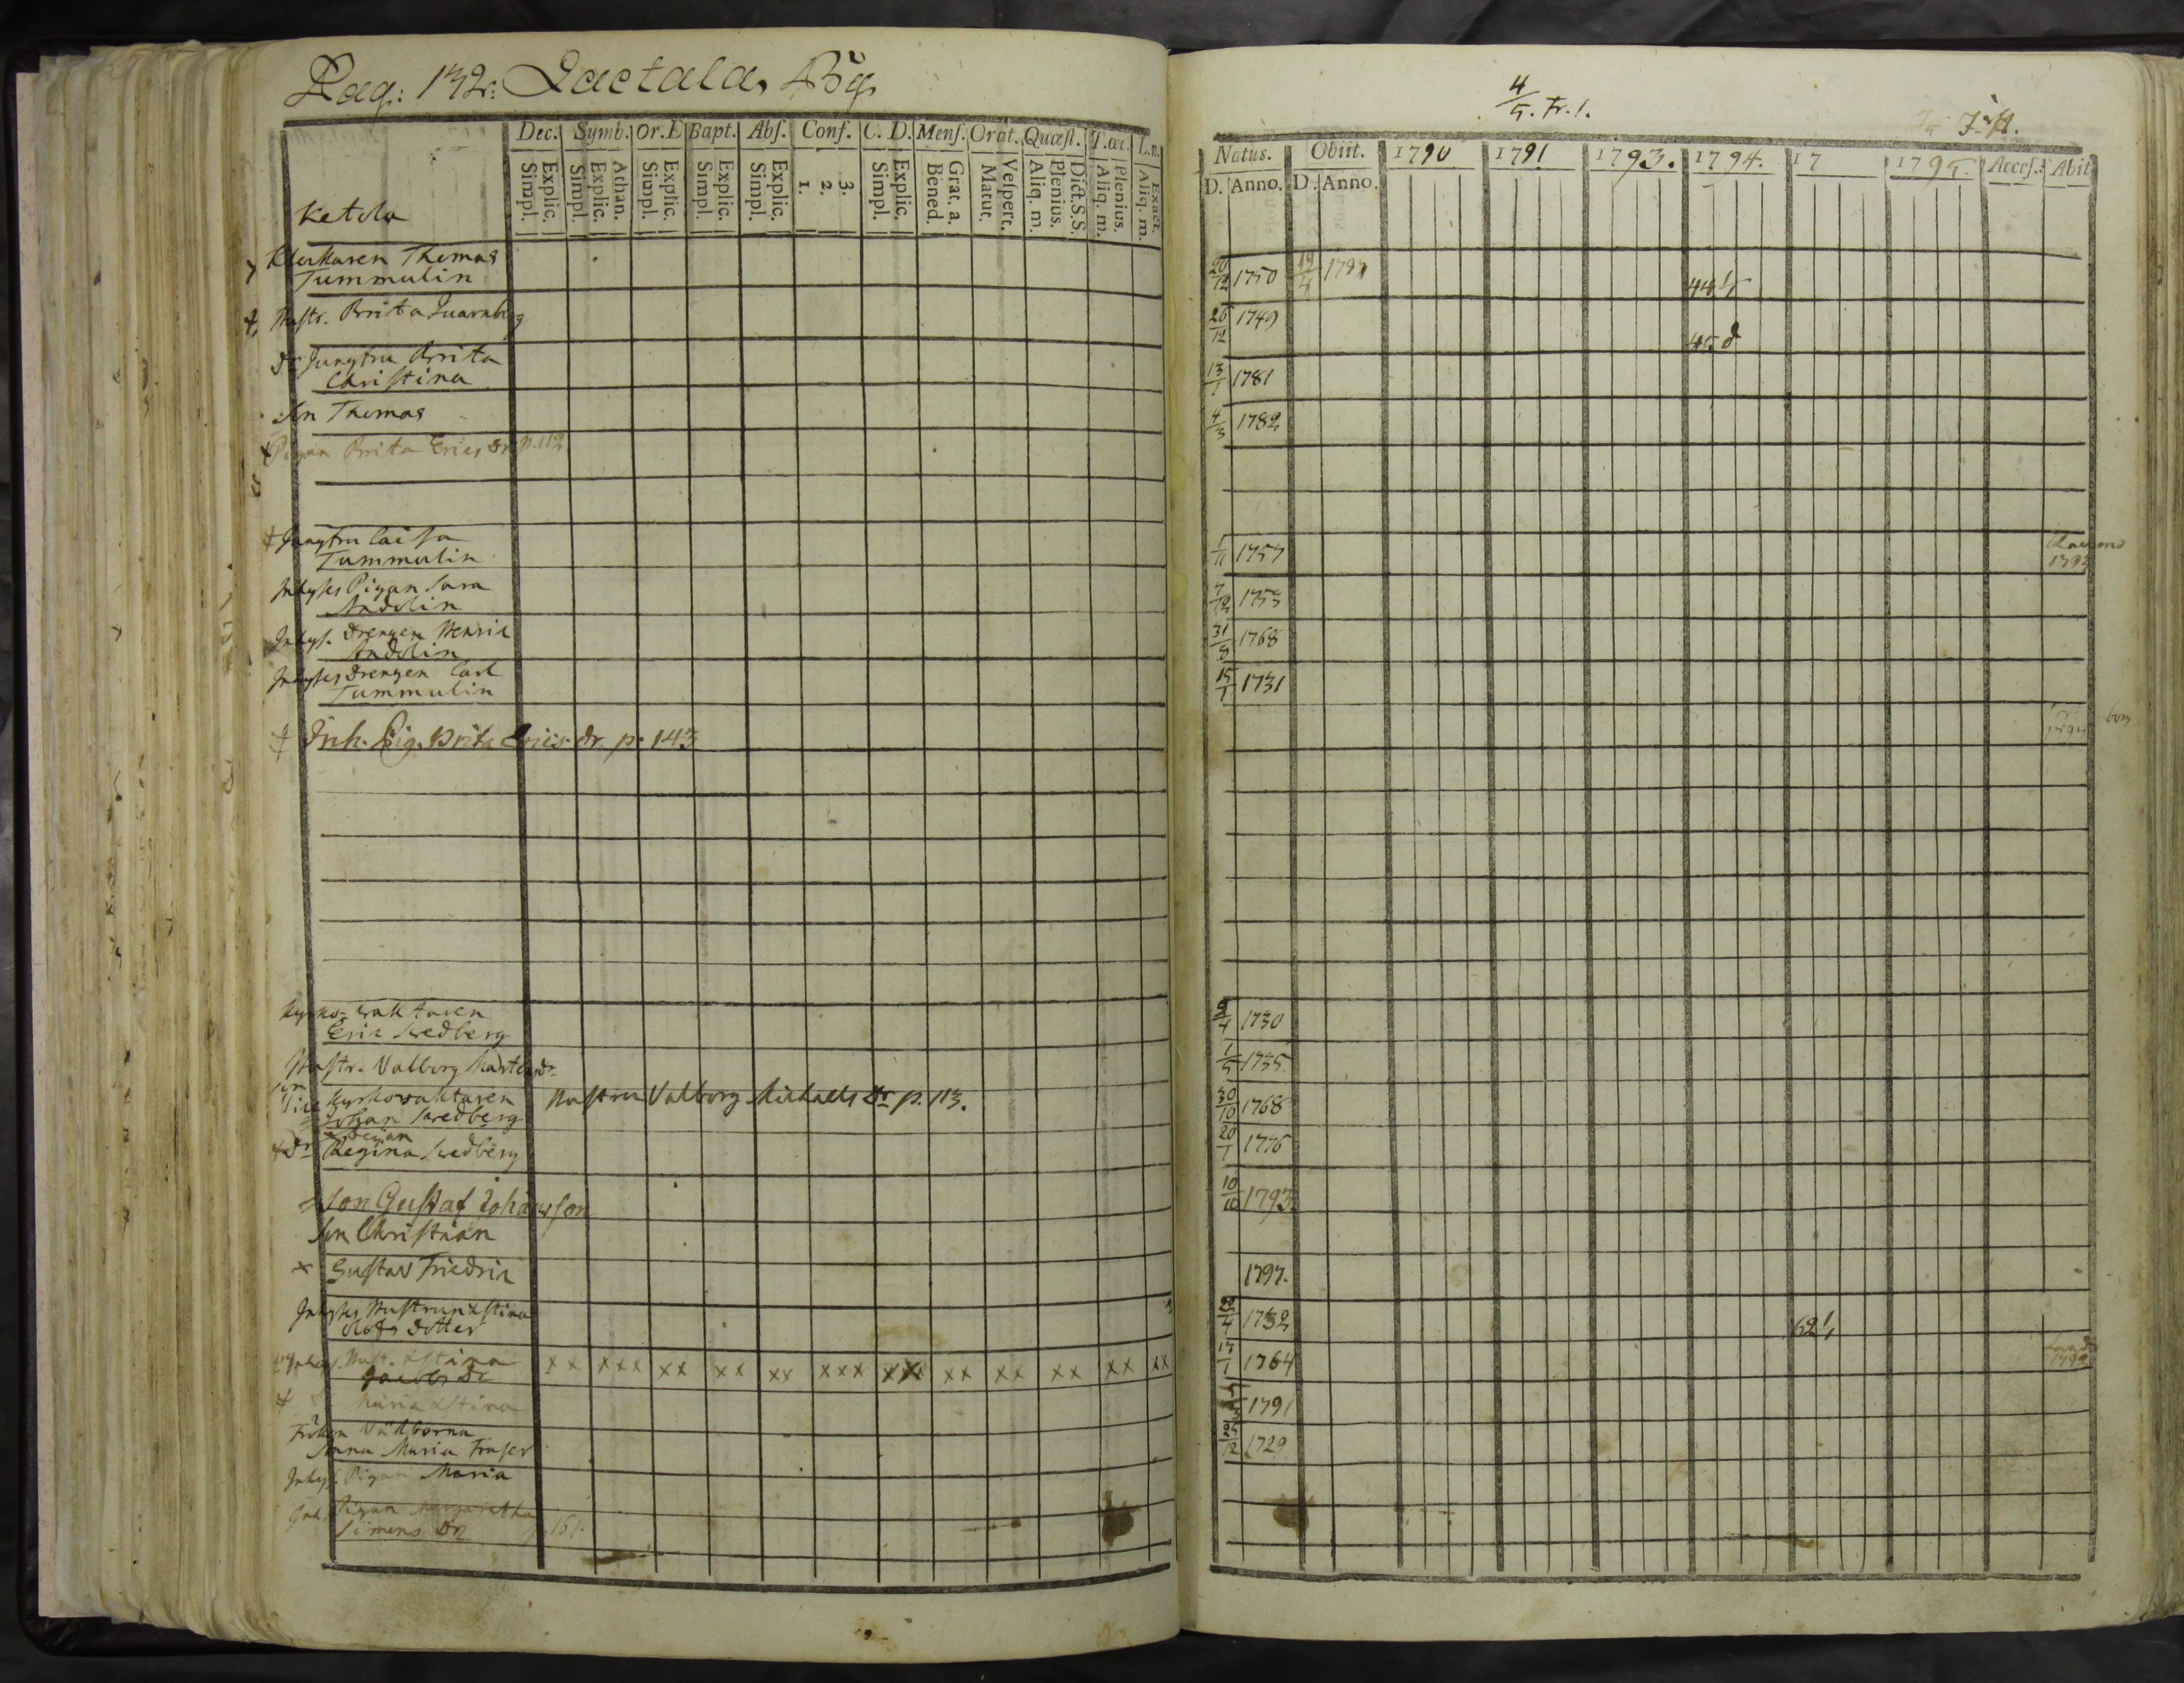 Pag: 132. Laetala, By.
Dec. Symb. Or. D Bapt. Abs. Conf. C. D. Mens. Orat. Quæst. T. œc. L. n.
Explic. Simpl. Athan. Explic. Simpl. Explic. Simpl. Explic. Simpl. Explic. Simpl. 3. 2. 1. Explic. Simpl. Grat. a. Bened. Vespert. Matut. Dict. S.S. Plenius. Aliq. m. Plenius. Aliq. m. Exact. Aliq. m.
Ketola
Klockaren Thomas
Tummulin
Hustr. Brita Luarnberg
dr Jungfru Brita
Christina
Son Thomas
Pigan Brita Erics dr p. 112
Jungfru Caisa
Tummulin
Inhyses Pigan Sara
Andolin
Inhys. drengen Henric
Andolin
Inhyses drengen Carl
Tummulin
Inh. Pig. Brita Erics dr. p. 143
Kyrko-waktaren
Eric Swedberg
Hustr. Valborg Martens dr
Son Vice Kyrkovaktaren
Johan Swedberg
Hustru Valborg Michaels dr p. 113.
dr Pigan
Regina Swedberg
Son Gustaf Johansson
Son Christian
Gustav Friedric
Inhyses Hustrun Stina
Olofs dotter
Inhys. Hust. Stina
Jacobs dr
x x x x x x x x x x x x x x x x x x x x x x x x x x
Maria Stina
Fröken Välborna
Anna Maria Fraser
Inhys. Pigan Maria
Inh. Pigan Margaretha
Simons dr p. 151.
4/5. Fr. 1.
Natus. Obiit. 1790 1791 1793. 1794. 17 1795. Acces. Abit.
D. Anno. D. Anno.
20/12 1750 19/4 1797
44 1/2
26/12 1749
45 d
13/1 1781
4/3 1782
1/11 1757 Raumo
1793
7/12 1753
31/8 1768
15/1 1731
borg
5/4 1730
1/5 1735
30/10 1768
20/1 1776
10/10 1793
1797.
22/4 1732
62 1/2
17/1 1764
1791
25/12 1729